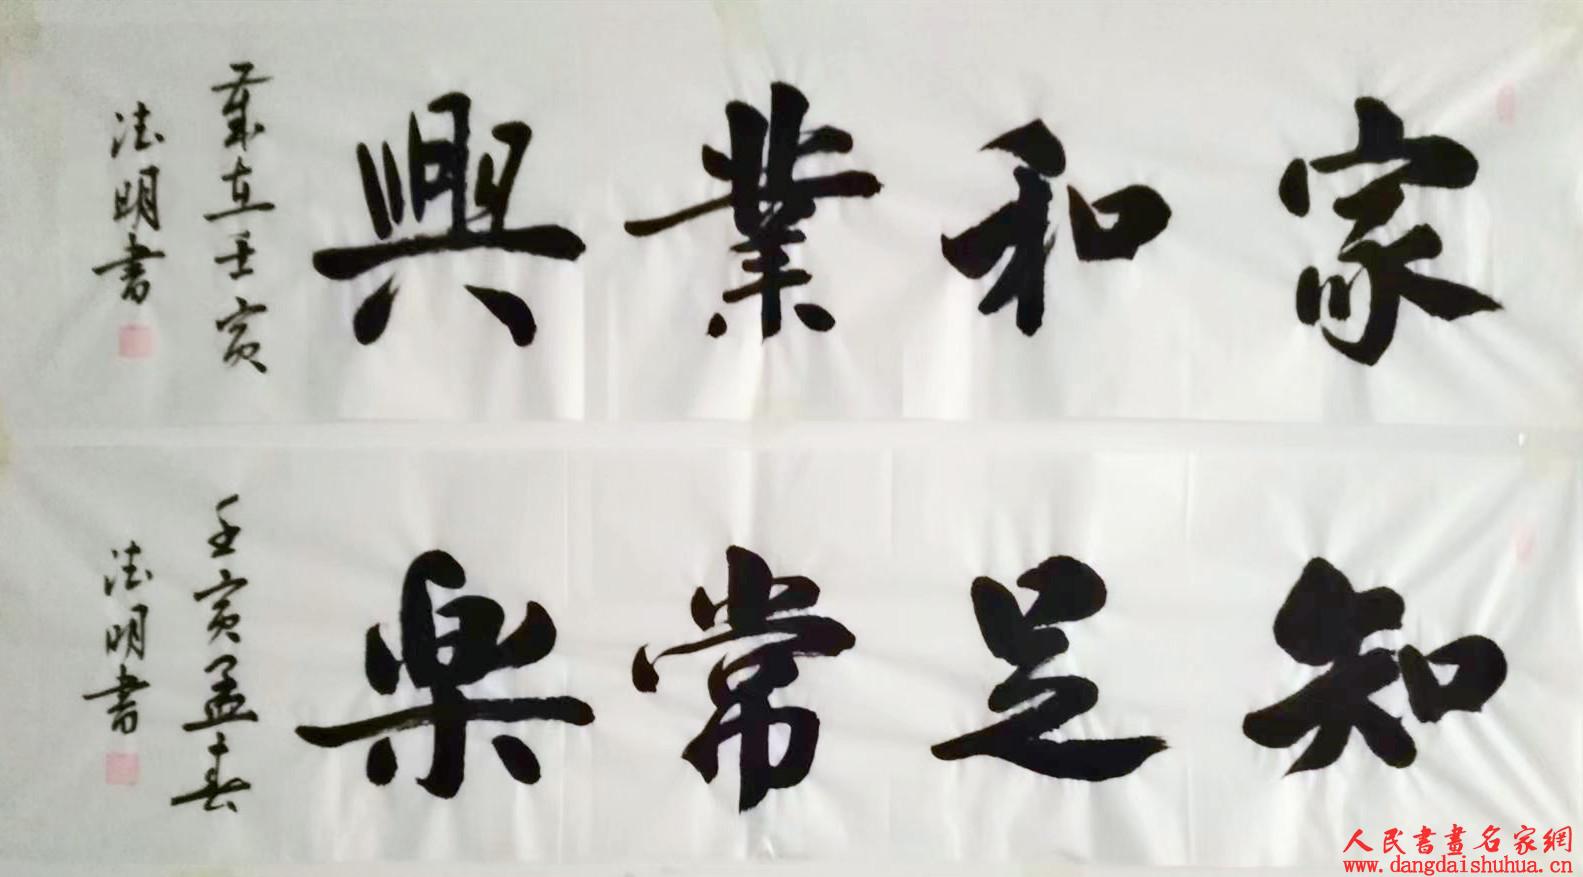 家和業興
歲在壬寅
法明書
知足常樂
壬寅孟春
法明書
人民書畫名家網
www.dangdaishuhua.cn